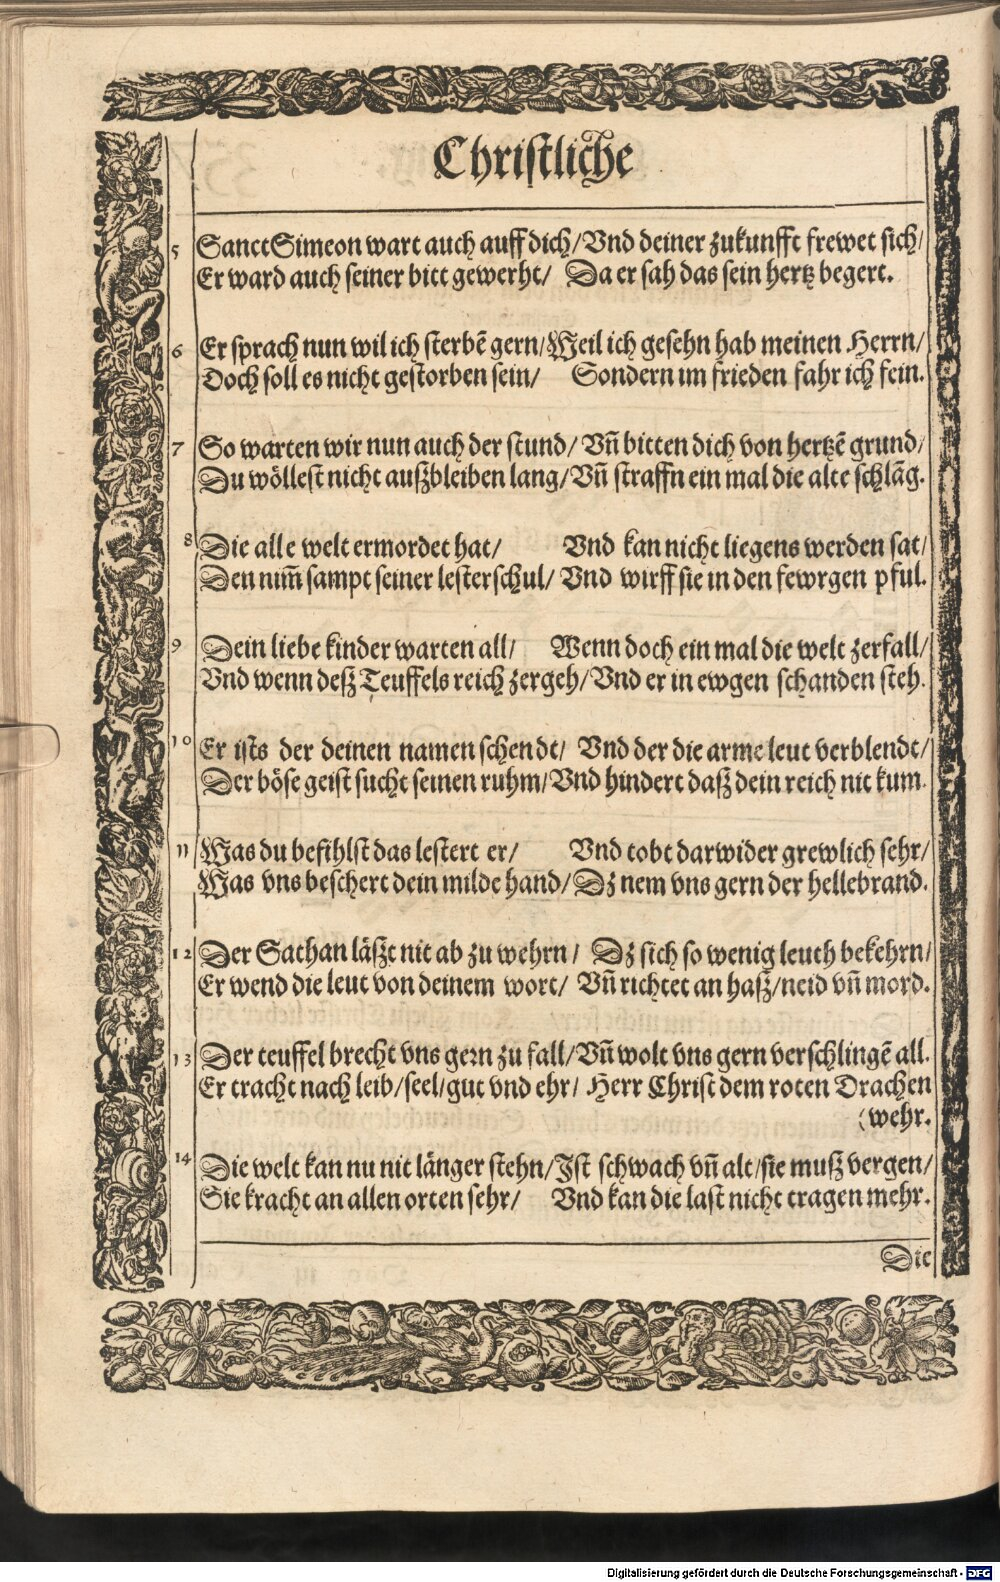 Christliche
5 Sanct Simeon wart auch auff dich/ Vnd deiner zukunfft frewet sich/
Er ward auch seiner bitt gewerht/ Da er sah das sein hertz begert.
6 Er sprach nun wil ich sterbẽ gern/ Weil ich gesehn hab meinen Herrn/
Doch soll es nicht gestorben sein/ Sondern im frieden fahr ich fein.
7 So warten wir nun auch der stund/ Vñ bitten dich von hertzẽ grund/
Du wöllest nicht außbleiben lang/ Vñ straffn ein mal die alte schlãg.
8 Die alle welt ermordet hat/ Vnd kan nicht liegens werden sat/
Den nim̃ sampt seiner lesterschul/ Vnd wirff sie in den fewrgen pful.
9 Dein liebe kinder warten all/ Wenn doch ein mal die welt zerfall/
Vnd wenn deß Teuffels reich zergeh/ Vnd er in ewgen schanden steh.
10 Er ists der deinen namen schendt/ Vnd der die arme leut verblendt/
Der böse geist sucht seinen ruhm/ Vnd hindert daß dein reich nit kum.
11 Was du befihlst das lestert er/ Vnd tobt darwider grewlich sehr/
Was vns beschert dein milde hand/ Dz nem vns gern der hellebrand.
12 Der Sathan läßt nit ab zu wehrn/ Dz sich so wenig leuth bekehrn/
Er wend die leut von deinem wort/ Vñ richtet an haß/ neid vñ mord.
13 Der teuffel brecht vns gern zu fall/ Vñ wolt vns gern verschlingẽ all.
Er tracht nach leib/ seel/ gut vnd ehr/ Herr Christ dem roten Drachen
(wehr.
14 Die welt kan nu nit länger stehn/ Ist schwach vñ alt/ sie muß vergen/
Sie kracht an allen orten sehr/ Vnd kan die last nicht tragen mehr.
Die
Digitalisierung gefördert durch die Deutsche Forschungsgemeinschaft - DFG